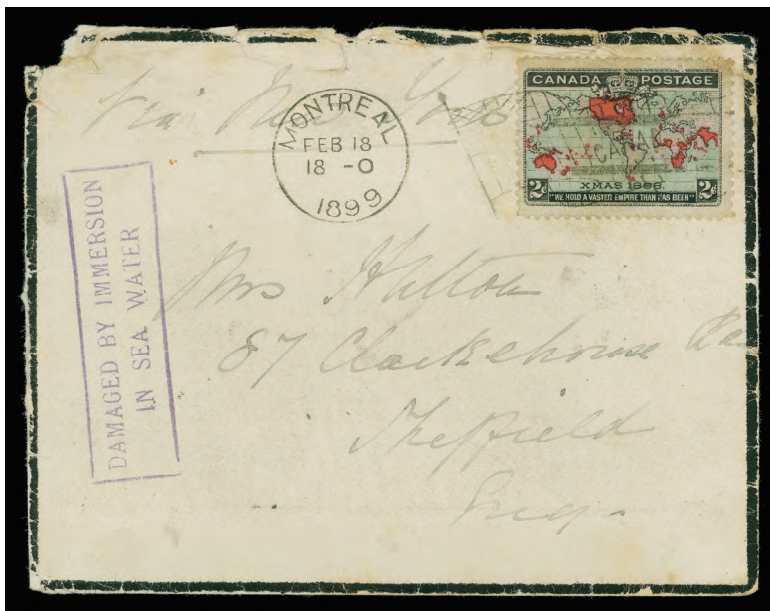 Via New York
MONTREAL
FEB 18
18 - 0
1899
CANADA POSTAGE
CANADA
XMAS 1898
2c 2c
"WE HOLD A VASTER EMPIRE THAN HAS BEEN"
DAMAGED BY IMMERSION
IN SEA WATER
Mrs Hutton
87 Clarkehouse Rd
Sheffield
Eng.